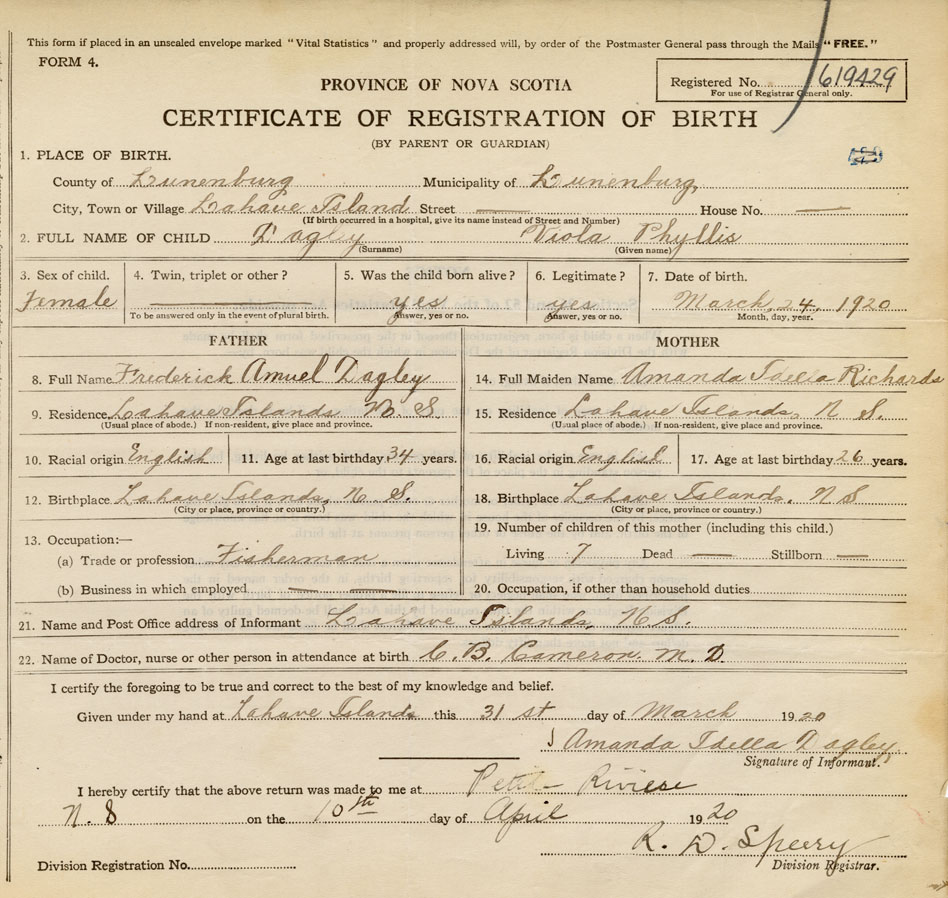 This form if placed in an unsealed envelope marked "Vital Statistics" and properly addressed will, by order of the Postmaster General pass through the Mails "FREE."
FORM 4.
Registered No. 619429
For use of Registrar General only.
PROVINCE OF NOVA SCOTIA
CERTIFICATE OF REGISTRATION OF BIRTH
(BY PARENT OR GUARDIAN)
1. PLACE OF BIRTH.
County of Lunenburg Municipality of Lunenburg
City, Town or Village Lahave Island Street — House No. —
(If birth occurred in a hospital, give its name instead of Street and Number)
2. FULL NAME OF CHILD Dagley Viola Phyllis
(Surname) (Given name)
3. Sex of child. 4. Twin, triplet or other? 5. Was the child born alive? 6. Legitimate? 7. Date of birth.
Female — yes yes March, 24, 1920
To be answered only in the event of plural birth. Answer, yes or no. Answer, yes or no. Month, day, year.
FATHER MOTHER
8. Full Name Frederick Amuel Dagley 14. Full Maiden Name Amanda Idella Richards
9. Residence Lahave Islands N. S. 15. Residence Lahave Islands, N S.
(Usual place of abode.) If non-resident, give place and province. (Usual place of abode.) If non-resident, give place and province.
10. Racial origin English 11. Age at last birthday 34 years. 16. Racial origin English 17. Age at last birthday 26 years.
12. Birthplace Lahave Islands, N. S. 18. Birthplace Lahave Islands. N S
(City or place, province or country.) (City or place, province or country.)
19. Number of children of this mother (including this child.)
13. Occupation:—
(a) Trade or profession Fisherman Living 7 Dead — Stillborn —
(b) Business in which employed — — 20. Occupation, if other than household duties
21. Name and Post Office address of Informant Lahave Islands, N S.
22. Name of Doctor, nurse or other person in attendance at birth C. B. Cameron. M. D.
I certify the foregoing to be true and correct to the best of my knowledge and belief.
Given under my hand at Lahave Islands this 31 st day of March 1920
Amanda Idella Dagley.
Signature of Informant.
I hereby certify that the above return was made to me at Petit Riviese
N. S on the 10th day of April 1920
R. D. Speery
Division Registrar.
Division Registration No.